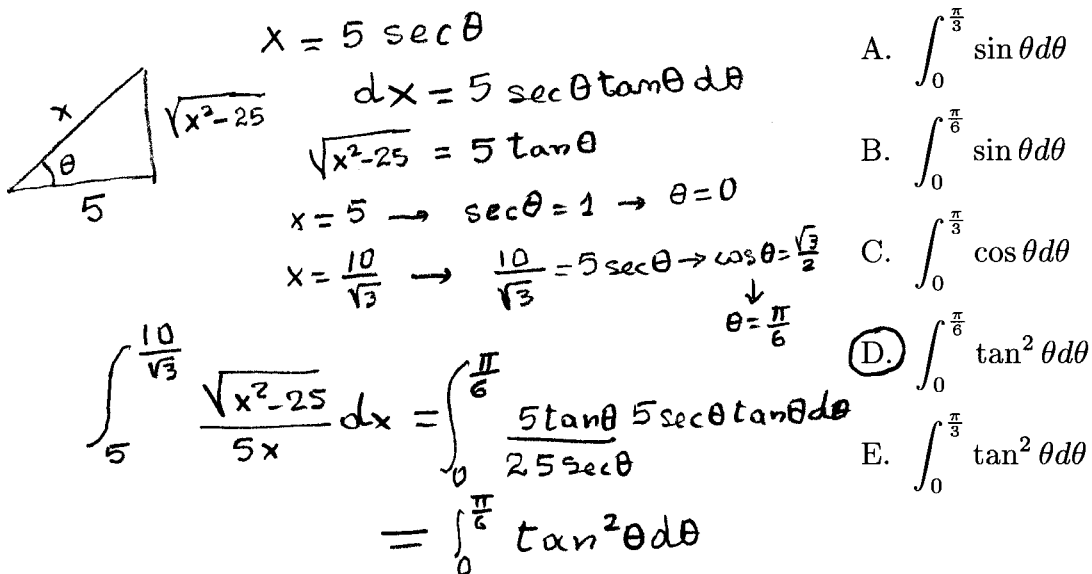 x = 5 sec θ
dx = 5 sec θ tan θ dθ
x
θ
5
√(x²-25)
√(x²-25) = 5 tan θ
x = 5 → sec θ = 1 → θ = 0
x = 10/√3 → 10/√3 = 5 sec θ → cos θ = √3/2
↓
θ = π/6
∫_5^{10/√3} √(x²-25)/5x dx = ∫_0^{π/6} 5 tan θ 5 sec θ tan θ dθ / 25 sec θ
= ∫_0^{π/6} tan² θ dθ
A. ∫_0^{π/3} sin θdθ
B. ∫_0^{π/6} sin θdθ
C. ∫_0^{π/3} cos θdθ
D. ∫_0^{π/6} tan² θdθ
E. ∫_0^{π/3} tan² θdθ